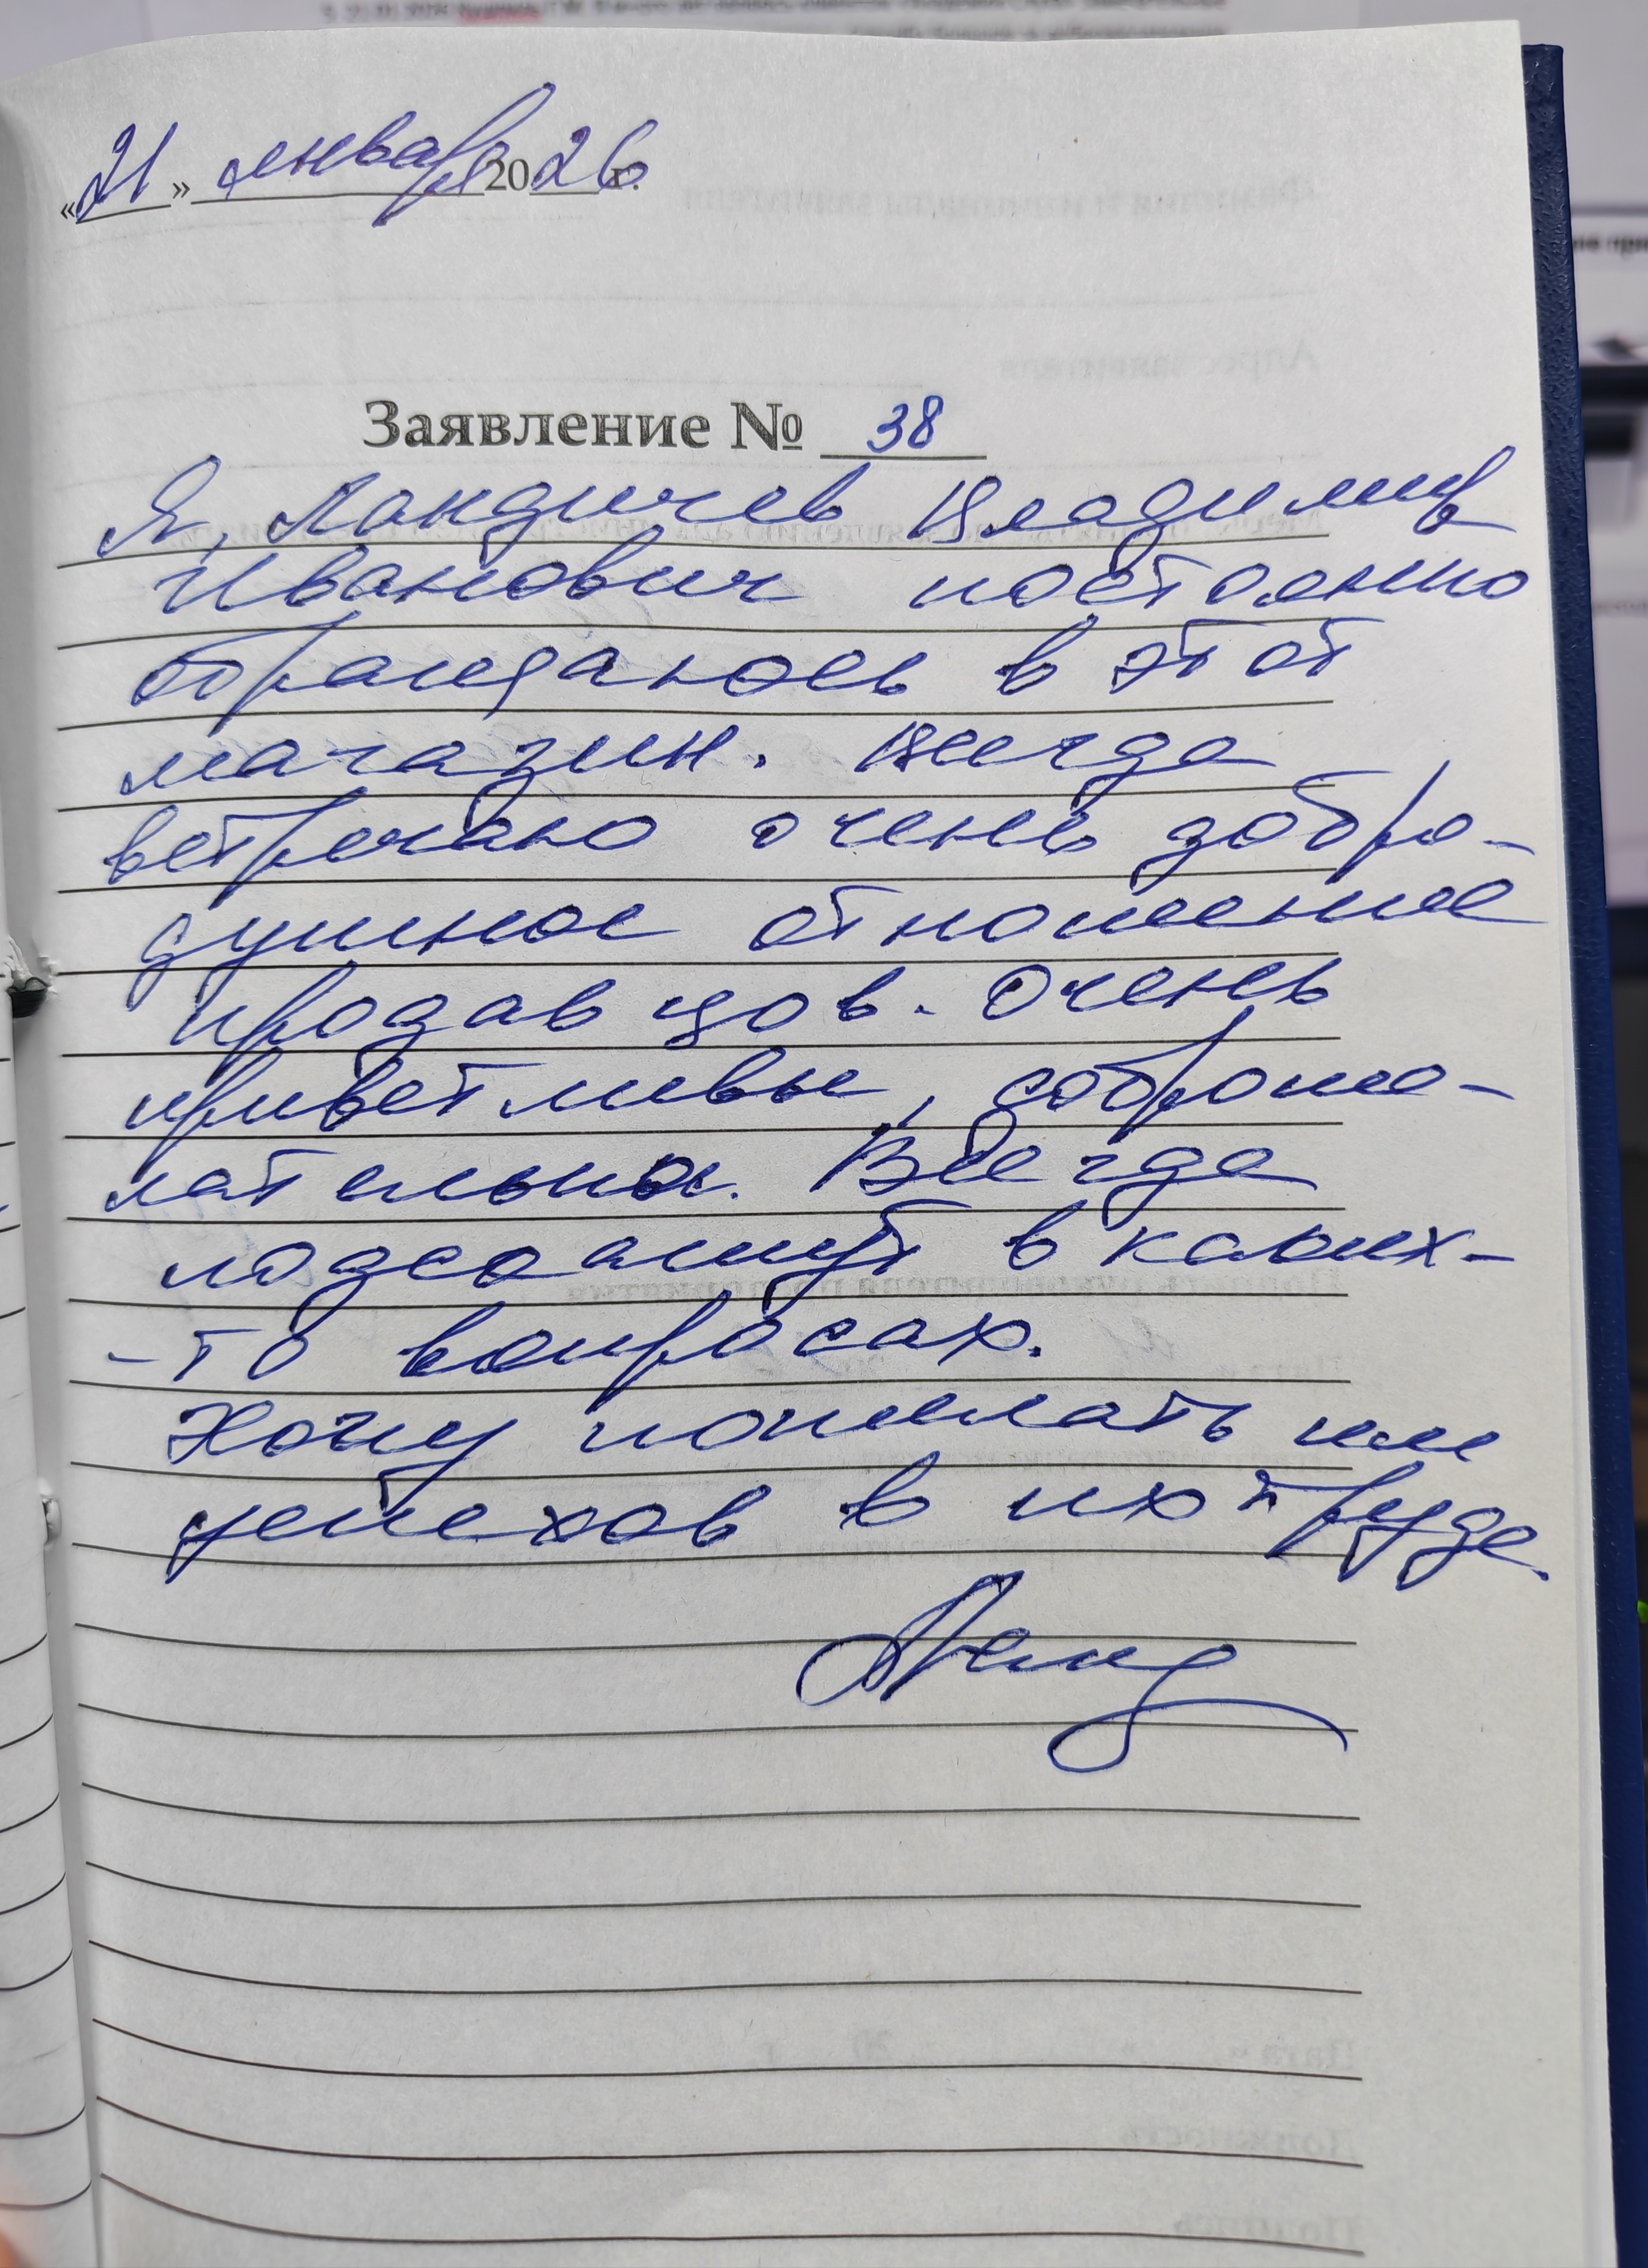 «21» января 2026 г.
Заявление № 38
Я, Лондичев Владимир
Иванович постоянно
обращаюсь в этот
магазин. Всегда
встречаю очень добро-
душное отношение
продавцов. Очень
приветливы, доброже-
лательны. Всегда
подскажут в каких-
-то вопросах.
Хочу пожелать им
успехов в их труде.